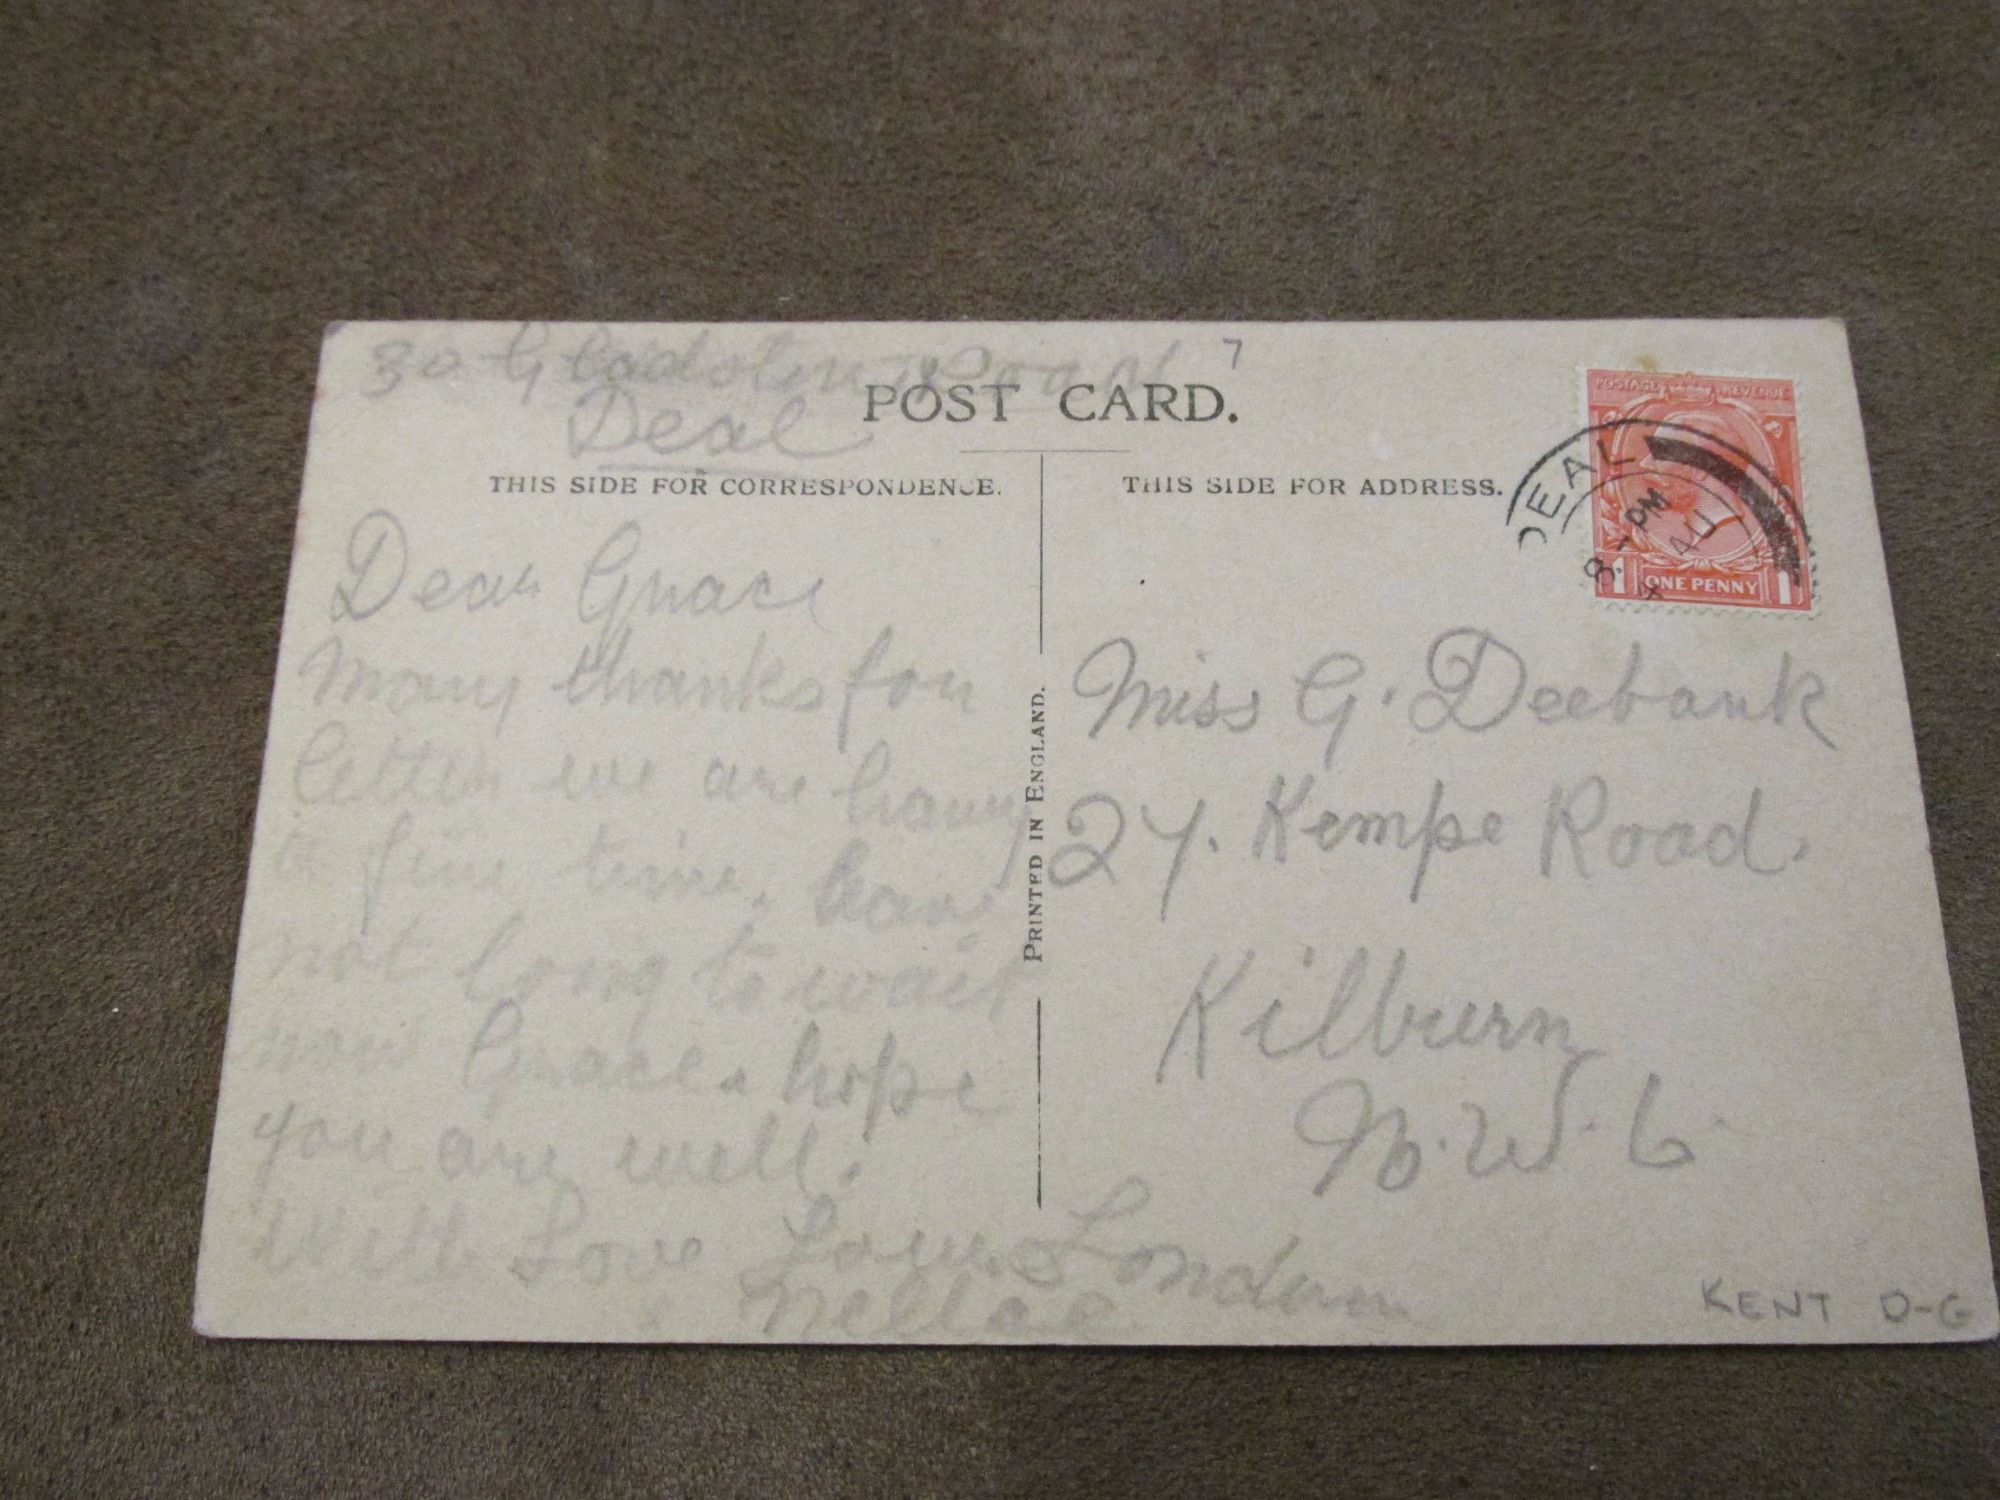 30 Gladstone Road
7
Deal
POST CARD.
THIS SIDE FOR CORRESPONDENCE.
Dear Grace
Many thanks for
letter we are having
a fine time. have
not long to wait
now Grace. hope
you are well.
With Love
London
PRINTED IN ENGLAND.
THIS SIDE FOR ADDRESS.
POSTAGE REVENUE
DEAL
8 - PM
AU
1 ONE PENNY 1
Miss G. Deebank
27. Kempe Road.
Kilburn
N.W.6.
KENT D-G